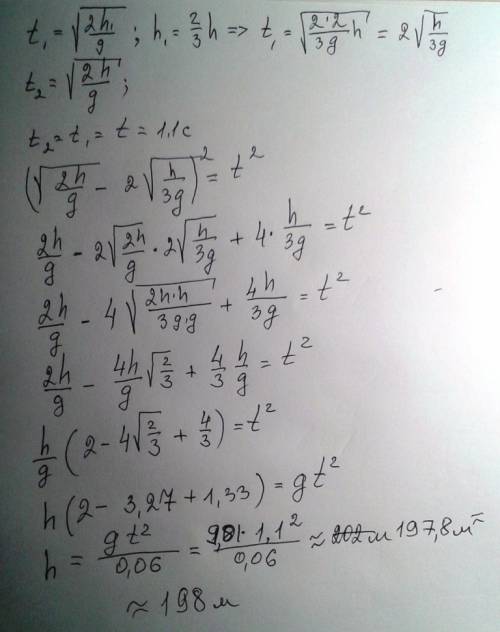 t₁ = √(2h₁/g) ; h₁ = 2/3 h => t₁ = √(2·2/3g h) = 2√(h/3g)
t₂ = √(2h/g) ;
t₂ = t₁ = t = 1,1 с
(√(2h/g) - 2√(h/3g))² = t²
2h/g - 2√(2h/g) · 2√(h/3g) + 4 · h/3g = t²
2h/g - 4√(2h·h/3g·g) + 4h/3g = t²
2h/g - 4h/g √(2/3) + 4/3 h/g = t²
h/g (2 - 4√(2/3) + 4/3) = t²
h(2 - 3,27 + 1,33) = gt²
h = gt²/0,06 = 9,81·1,1²/0,06 ≈ 202м 197,8м =
≈ 198 м